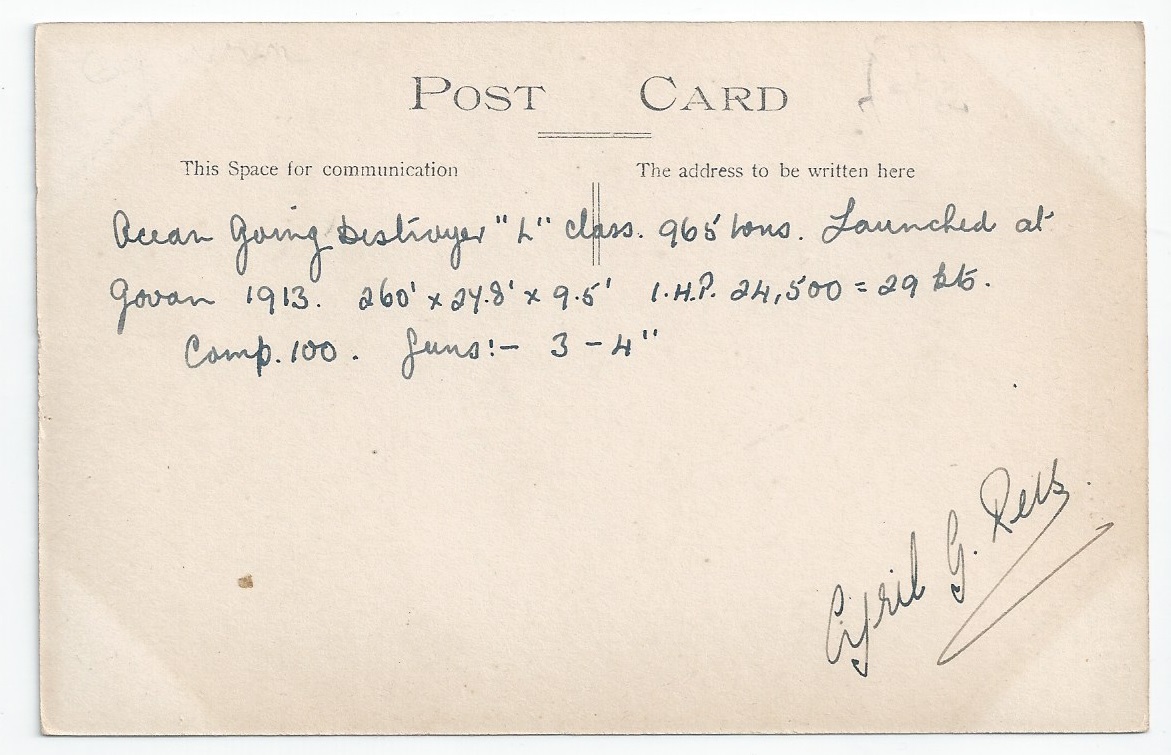 POST CARD
This Space for communication
The address to be written here
Ocean Going Destroyer "L" class. 965 tons. Launched at
Govan 1913. 260' x 27.8' x 9.5' I.H.P. 24,500 = 29 kts.
Comp. 100. Guns:- 3 - 4"
Cyril G.